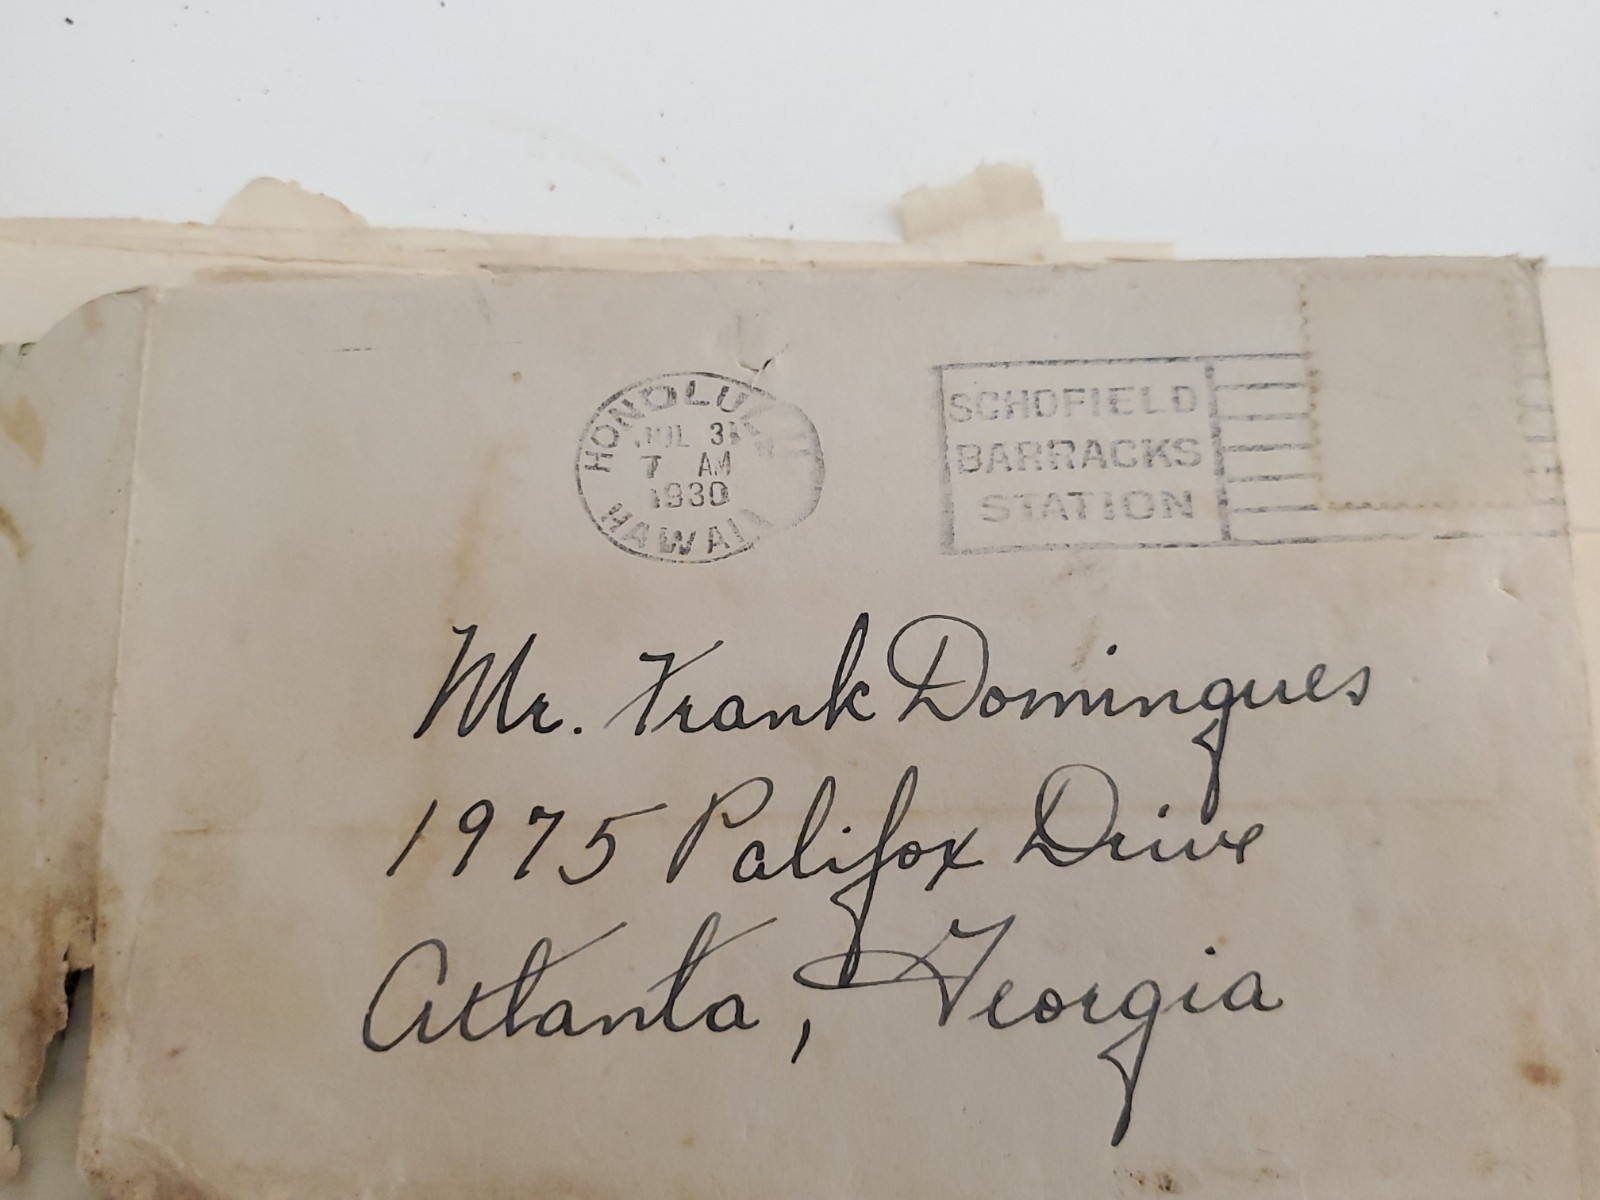 HONOLULU
JUL 31
7 AM
1930
HAWAII
SCHOFIELD
BARRACKS
STATION
Mr. Frank Domingues
1975 Palifox Drive
Atlanta, Georgia